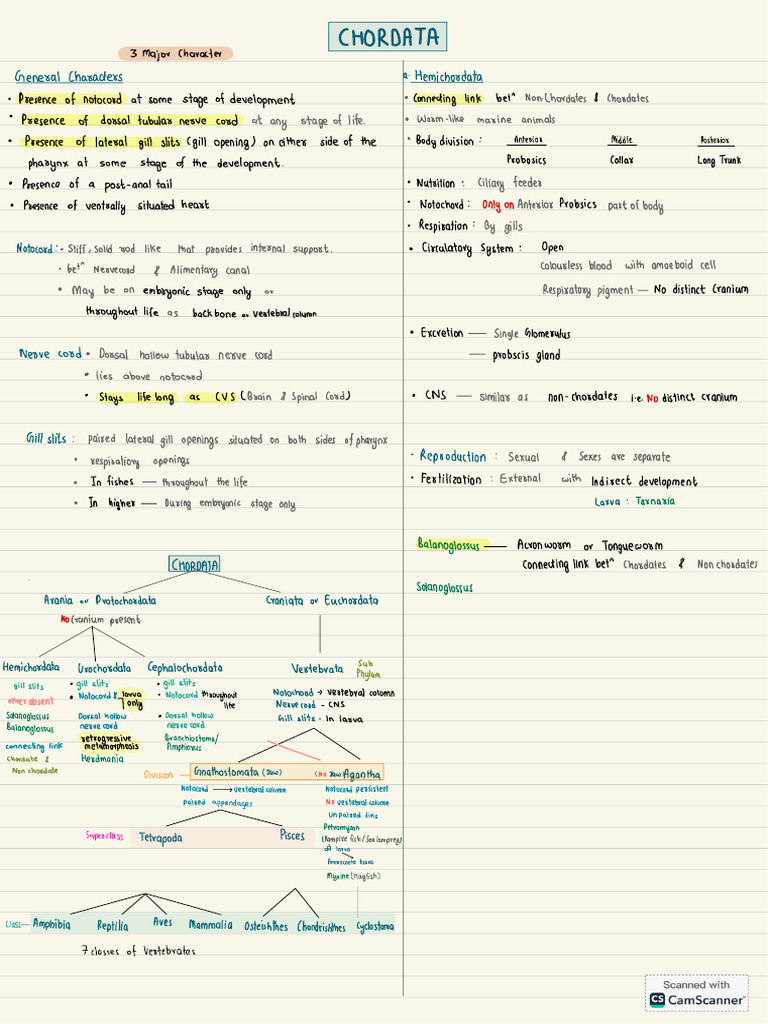 CHORDATA
3 Major Character
General Charaders
• Presence of notocord at some stage of development
• Presence of dorsal tubular nerve cord at any stage of life.
• Presence of lateral gill slits (gill opening) on either side of the
pharynx at some stage of the development.
• Presence of a post-anal tail
• Presence of ventrally situated heart
Notocord:- Stiff, Solid rod like that provides internal support.
• betn Nervecord & Alimentary canal
• May be on embryonic stage only or
throughout life as backbone or vertebral column
Nerve cord • Dorsal hollow tubular nerve cord
• lies above notocord
• Stays life long as CVS (Brain & Spinal Cord)
Gill slits : paired lateral gill openings situated on both sides of pharynx
• respiratiory openings
• In fishes — throughout the life
• In higher — During embryonic stage only
CHORDATA
Arania or Protochordata
Craniata or Euchordata
No Cranium present
Hemichordata
gill slits
other absent
Solanoglossus
Balanoglossus
connecting link
chordate &
Non chordate
Urochordata
• gill slits
• Notocord & larva only
Dorsal hollow
nerve cord
retrogressive
metamorphosis
Herdmonia
Cephalochordata
• gill slits
• Notocord throughout life
• Dorsal hollow
nerve cord
Branchiostoma/
Amphioxus
Vertebrata Sub Phylum
Notochord → vertebral column
Nerve cord - CNS
Gill slits - In larva
Division — Gnathostomata (Jaw) (No Jaw) Agantha
Notocord → vertebral column
paired appendages
Notocord persistent
No vertebral column
Unpaired fins
Petromyzon
(Vampire fish/Sea lamprey)
larva
Ammocoete larva
Myxine (Hagfish)
Superclass Tetrapoda Pisces
Class— Amphibia Reptilia Aves Mammalia Osteichthes Chondrishthes Cyclostoma
7 classes of Vertebrates
a. Hemichordata
• Connecting link betn Non-Chordates & Chordates
• Worm-like marine animals
• Body division : Anterior Middle Posterior
Probosics Collar Long Trunk
• Nutrition : Ciliary feeder
• Notochord : Only on Anterior Probsics part of body
• Respiration : By gills
• Circulatory System : Open
Colourless blood with amoeboid cell
Respiratory pigment — No distinct Cranium
• Excretion — Single Glomerulus
— probscis gland
• CNS — Similar as non-chordates i.e. No distinct cranium
• Reproduction : Sexual & Sexes are separate
• Fertilization : External with Indirect development
Larva : Tarnaria
Balanoglossus — Acronworm or Tongueworm
Connecting link betn Chordates & Non chordates
Solanoglossus
Scanned with
CS CamScanner